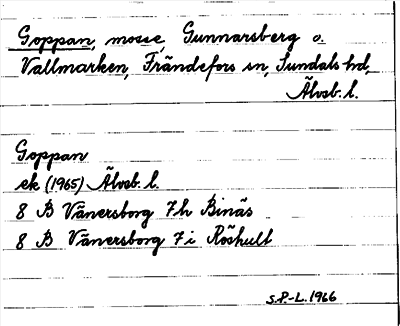 Goppan, mosse, Gunnarsberg o.
Vallmarken, Frändefors sn, Sundals hd,
Älvsb. l.
Goppan
ek (1965) Älvsb. l.
8 B Vänersborg 7h Binäs
8 B Vänersborg 7i Röshult
S.P-L. 1966